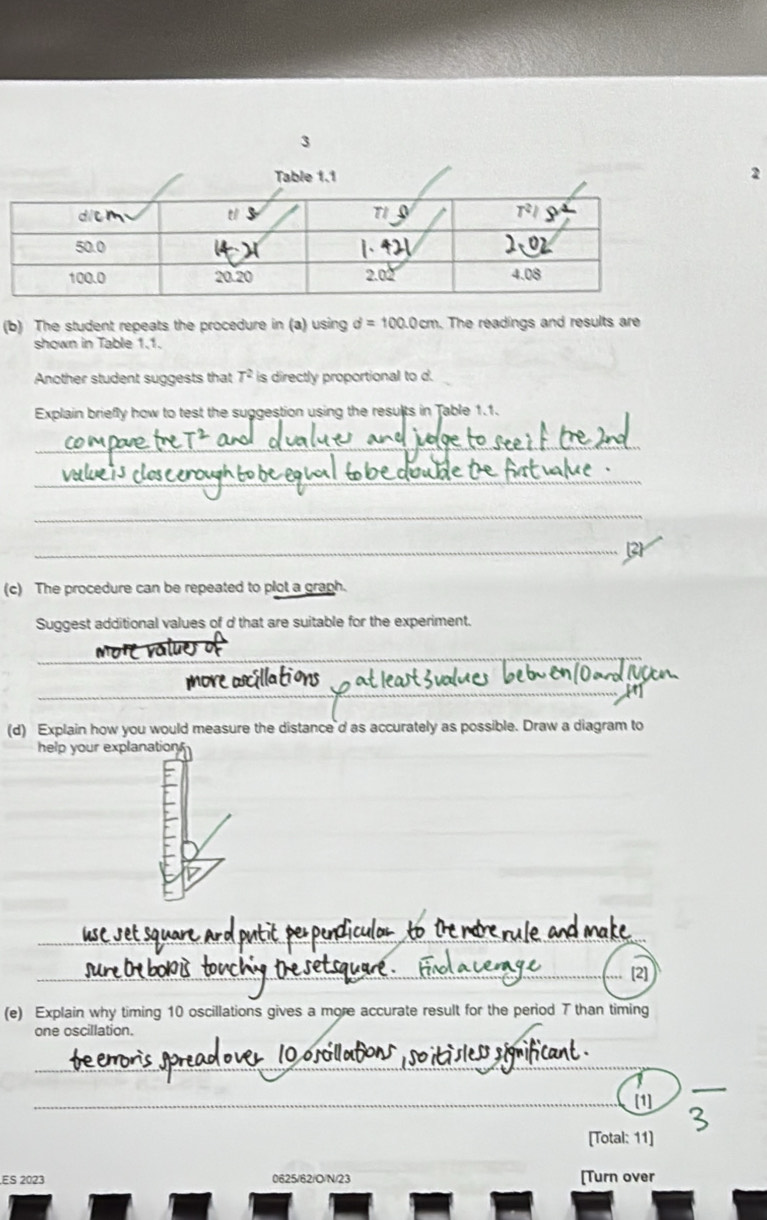 3
Table 1.1
2
d/cm t/ s T/ s T²/ s²
50.0 14.21 1.421 2.02
100.0 20.20 2.02 4.08
(b) The student repeats the procedure in (a) using d = 100.0 cm. The readings and results are
shown in Table 1.1.
Another student suggests that T² is directly proportional to d.
Explain briefly how to test the suggestion using the results in Table 1.1.
compare the T² and d values and judge to see if the 2nd
value is close enough to be equal to be double the first value.
[2]
(c) The procedure can be repeated to plot a graph.
Suggest additional values of d that are suitable for the experiment.
more values of
more oscillations at least 3 values between 10 and cm
[1]
(d) Explain how you would measure the distance d as accurately as possible. Draw a diagram to
help your explanation.
use set square and put it perpendicular to the metre rule and make
sure the bob is touching the set square. Find average
[2]
(e) Explain why timing 10 oscillations gives a more accurate result for the period T than timing
one oscillation.
the error is spread over 10 oscillations, so it is less significant.
[1]
3
[Total: 11]
ES 2023 0625/62/O/N/23 [Turn over